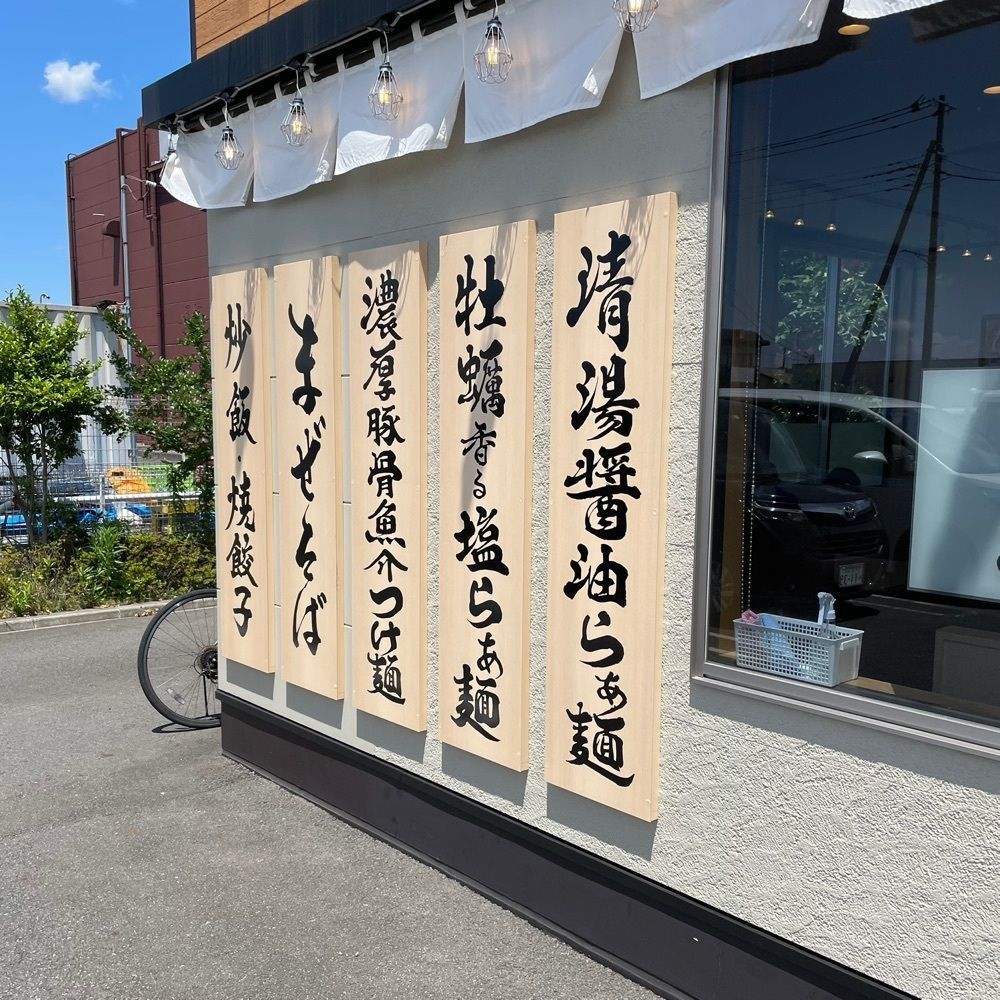 清湯醤油らぁ麺
牡蠣香る塩らぁ麺
濃厚豚骨魚介つけ麺
まぜそば
炒飯・焼餃子